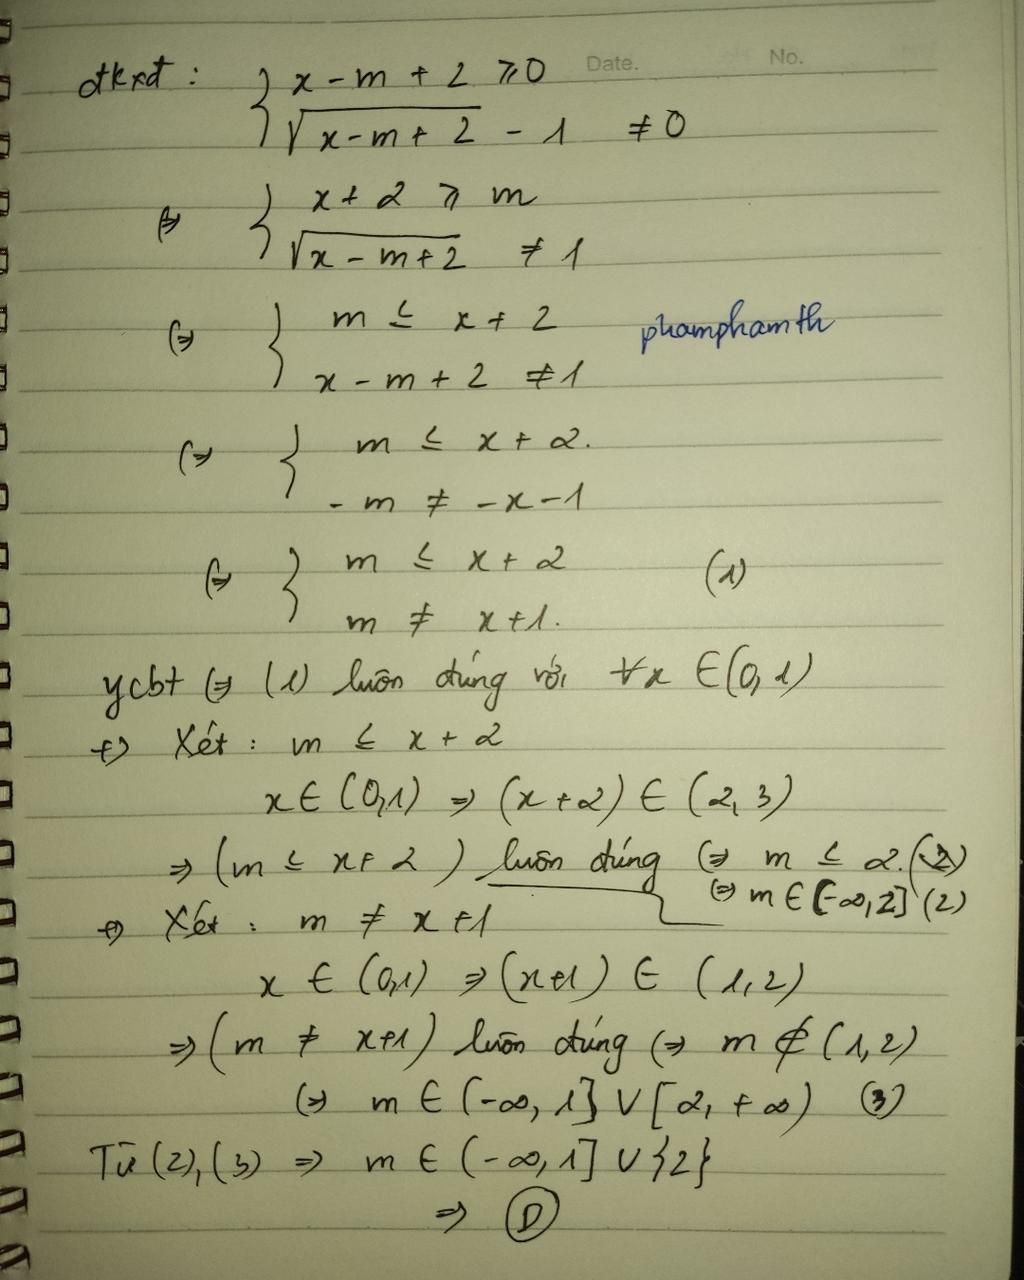 đkxđ : { x - m + 2 ⩾ 0 Date. No.
√(x - m + 2) - 1 ≠ 0
⇔ { x + 2 ⩾ m
√(x - m + 2) ≠ 1
⇔ { m ≤ x + 2
phamphamth
x - m + 2 ≠ 1
⇔ { m ≤ x + 2.
- m ≠ - x - 1
⇔ { m ≤ x + 2 (1)
m ≠ x + 1.
ycbt ⇔ (1) luôn đúng với ∀x ∈ (0,1)
+) Xét : m ≤ x + 2
x ∈ (0,1) ⇒ (x + 2) ∈ (2, 3)
⇒ (m ≤ x + 2) luôn đúng ⇔ m ≤ 2. (2)
⇔ m ∈ (-∞, 2] (2)
+) Xét : m ≠ x + 1
x ∈ (0,1) ⇒ (x+1) ∈ (1, 2)
⇒ (m ≠ x+1) luôn đúng ⇔ m ∉ (1, 2)
⇔ m ∈ (-∞, 1] ∪ [2, +∞) (3)
Từ (2), (3) ⇒ m ∈ (-∞, 1] ∪ {2}
⇒ D